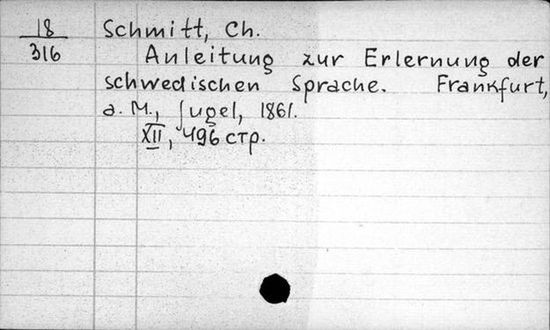 18
316
Schmitt, Ch.
Anleitung zur Erlernung der
schwedischen Sprache. Frankfurt,
a. M., Jugel, 1861.
XII, 496 стр.